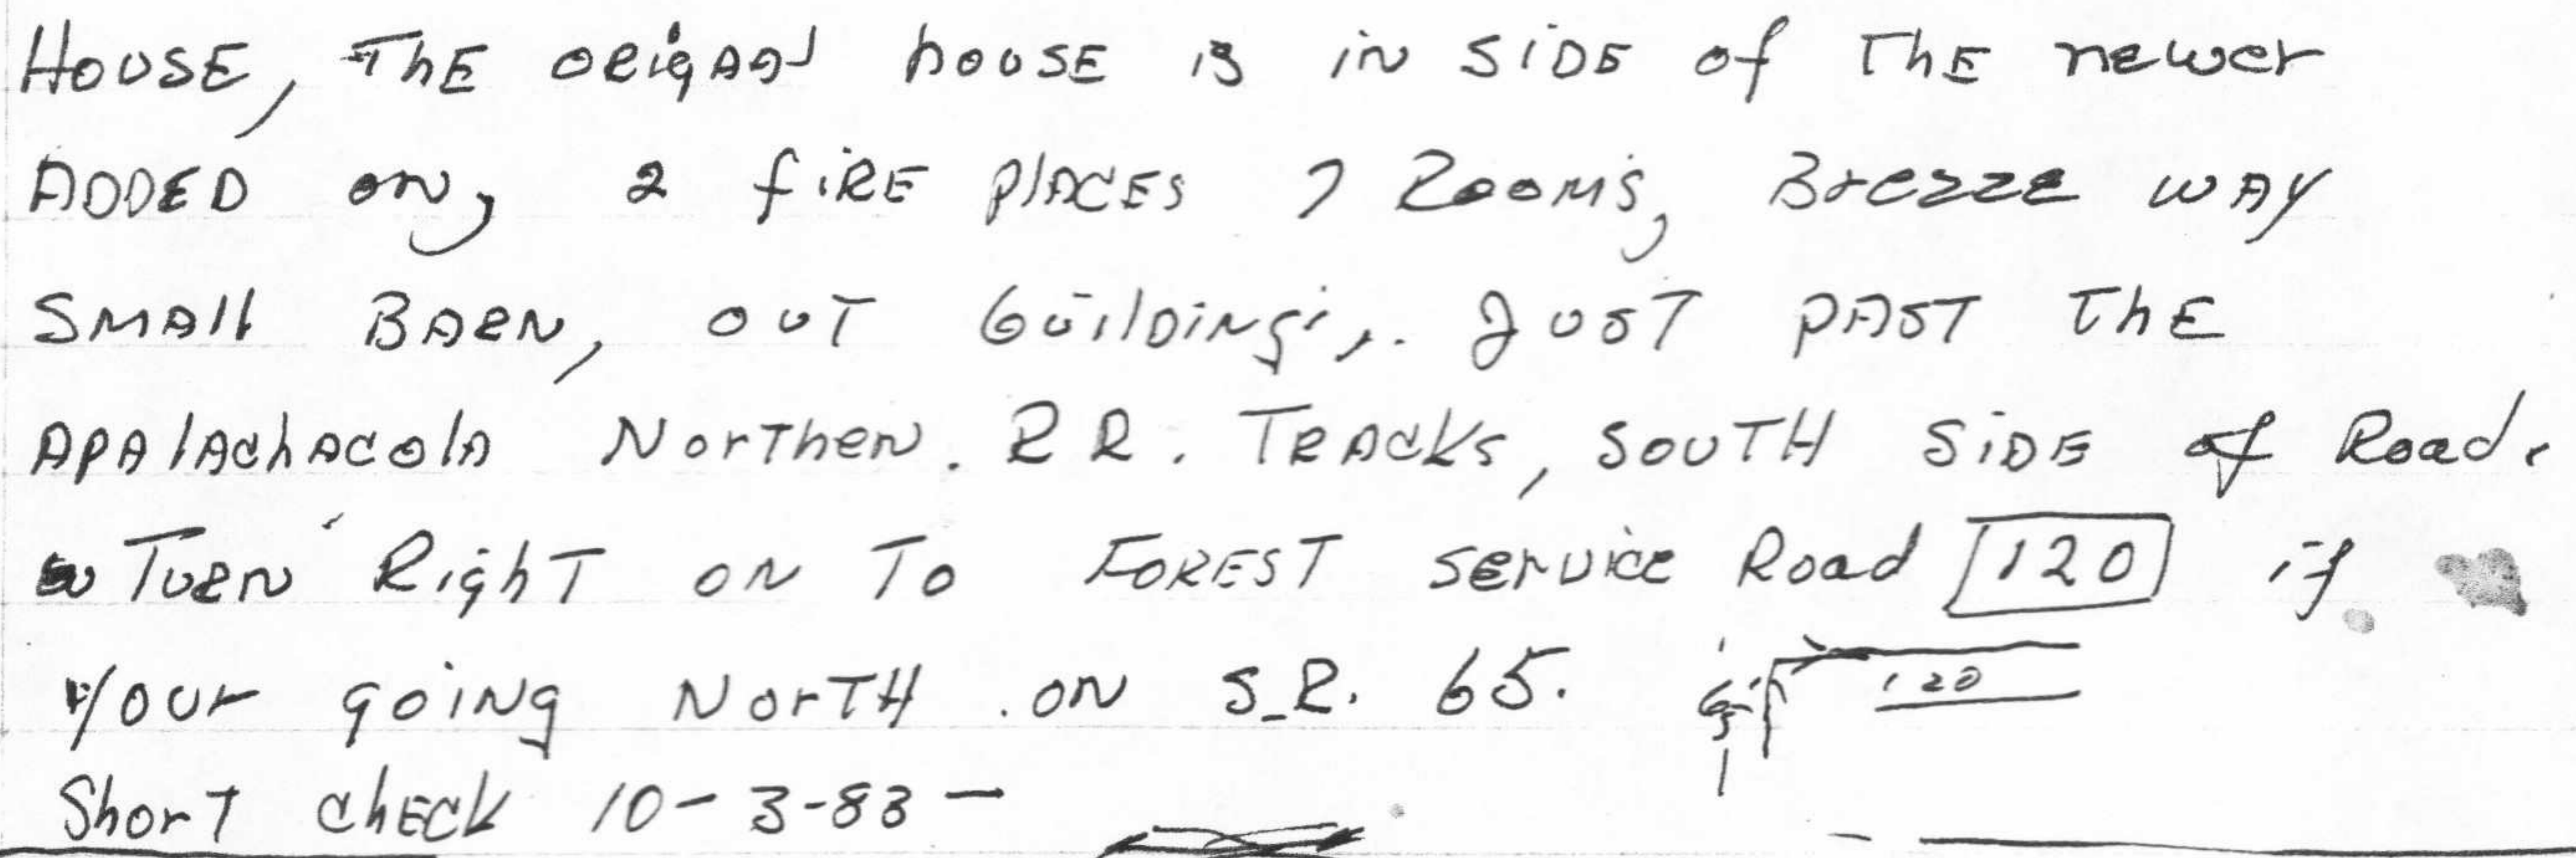 HOUSE, The origaal house is in SIDE of The newer
ADDED on, 2 fiRE plACES 7 Rooms, Brezze wAy
SMAll BARN, out buildings,. Just pAST The
APAlAchAcolA Northen. R R. TRAcks, south SiDE of Road.
Turn Right on To FOREST service Road 120 if
your going North . on S.R. 65. 65 120
Short check 10-3-83-